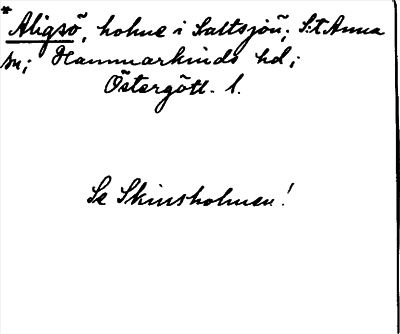 * Aligsö, holme i Saltsjön; S:t Anna
sn; Hammarkinds hd;
Östergötl. l.
Se Skinsholmen!